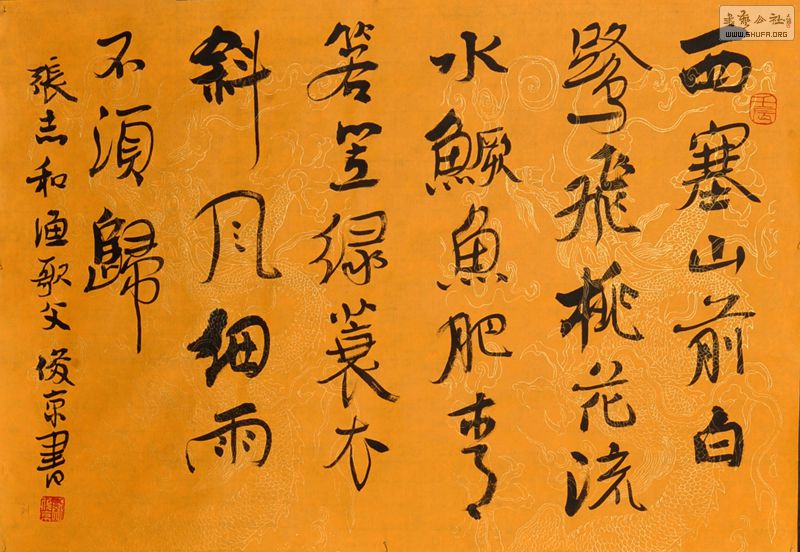 西塞山前白
鷺飛桃花流
水鱖魚肥青
箬笠緑蓑衣
斜風細雨
不須歸
張志和漁歌父 俊京書
書藝公社
WWW.SHUFA.ORG